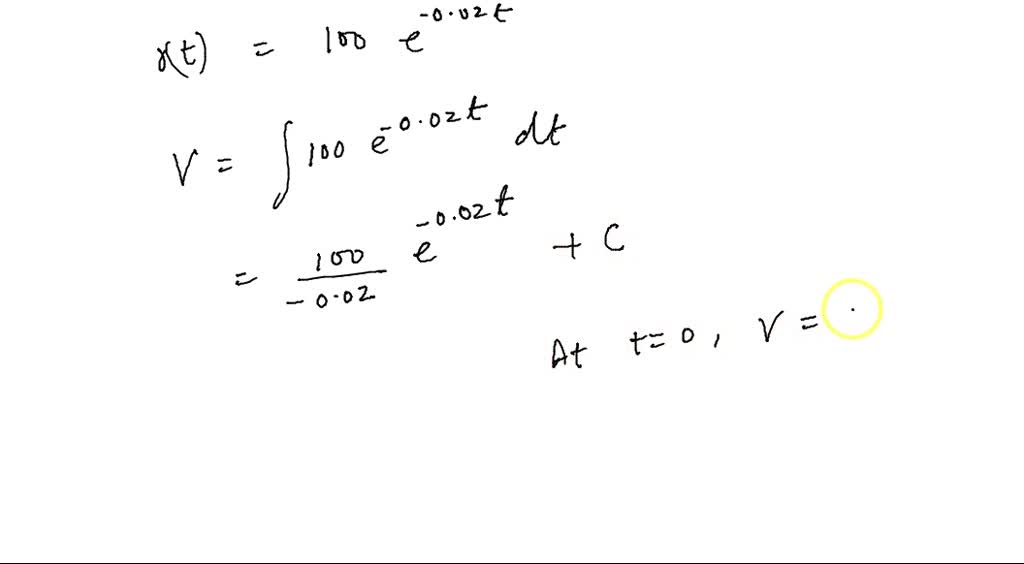 r(t) = 100 e^{-0.02t}
V = ∫ 100 e^{-0.02t} dt
= \frac{100}{-0.02} e^{-0.02t} + C
At t=0, V =